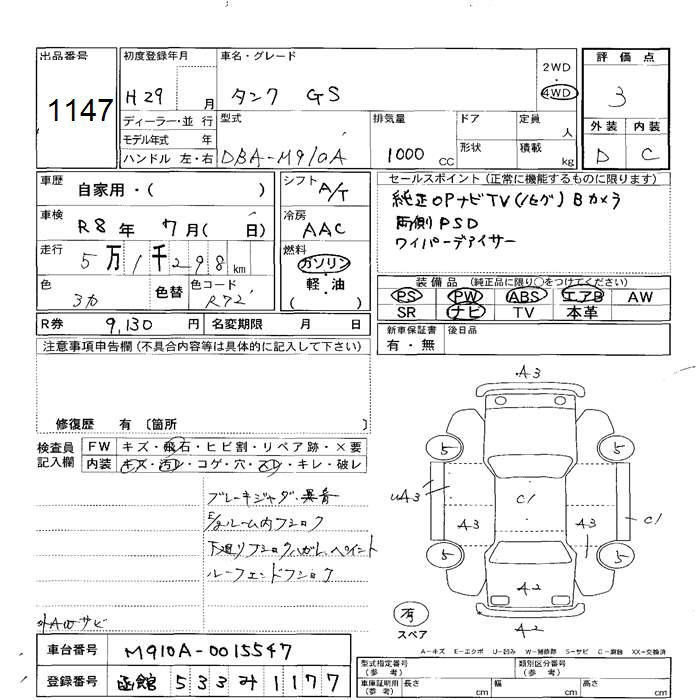 出品番号
1147
初度登録年月
H29 月
車名・グレード
タンク GS
2WD
4WD
評価点
3
ディーラー・並 行
モデル年式 年
ハンドル 左・右
型式
DBA-M910A
排気量
1000 CC
ドア
形状
定員
人
積載
kg
外装 内装
D C
車歴
自家用・( )
シフト
A/T
セールスポイント(正常に機能するものに限ります)
純正OPナビTV(1セグ) Bカメラ
両側PSD
ワイパーデアイサー
車検
R8年 7月( 日)
冷房
AAC
走行
5万1千298km
燃料
ガソリン
軽・油
( )
色
3カ
色替
色コード
R72
装備品(純正品に限り○をつけてください)
PS PW ABS エアB AW
SR ナビ TV 本革
R券 9,130円
名変期限 月 日
新車保証書
有・無
後日品
注意事項申告欄(不具合内容等は具体的に記入して下さい)
修復歴 有〔箇所 〕
検査員
記入欄
FW キズ・飛石・ヒビ割・リペア跡・×要
内装 キズ・汚レ・コゲ・穴・スレ・キレ・破レ
ブレーキジャダ・異音
E/gルーム内フショク
下廻リフショク,ハガレ,ペイント
ルーフエンドフショク
外AWサビ
A3
5
5
uA3
A3
C1
A3
C1
5
5
A2
有
スペア
A2
A-キズ E-エクボ U-凹み W-補修跡 S-サビ C-腐蝕 XX-交換済
車台番号 M910A-0015547
登録番号 函館 533み1177
型式指定番号
(参考)
類別区分番号
(参考)
車庫証明用
(参考)
長さ cm
幅 cm
高さ cm